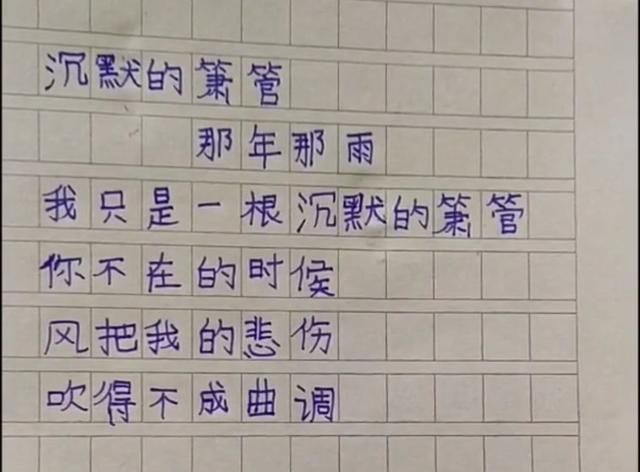 沉默的箫管
那年那雨
我只是一根沉默的箫管
你不在的时候
风把我的悲伤
吹得不成曲调